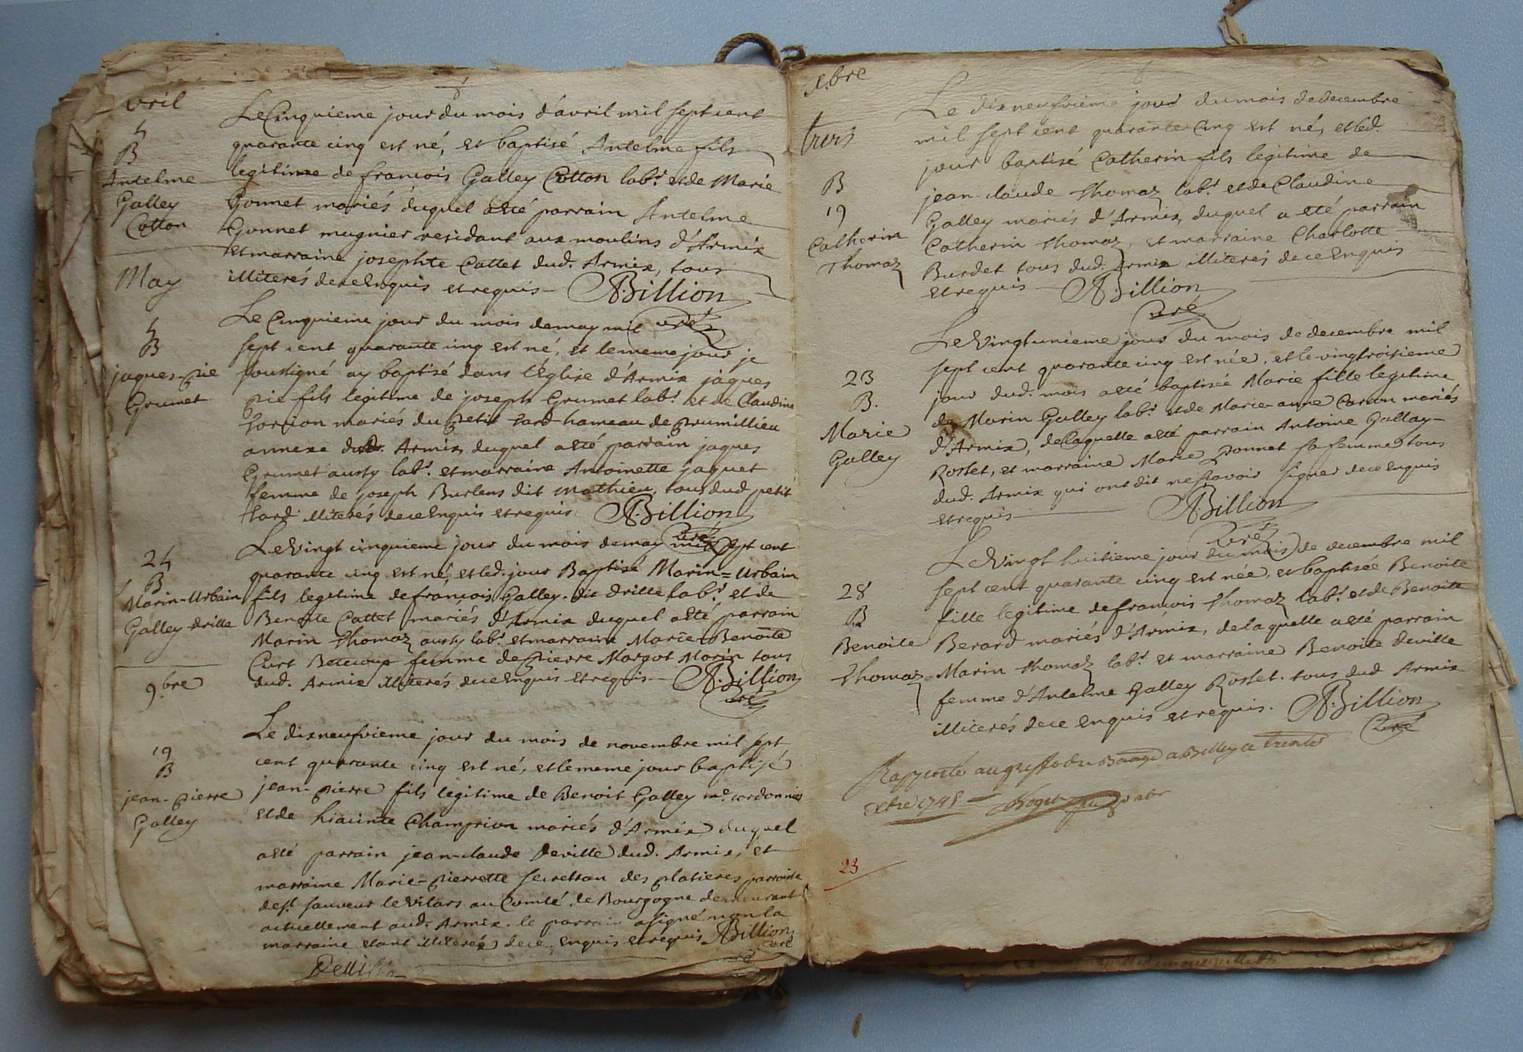 vril
5
B
Antelme
Galley
Cotton
Le Cinquieme jour du mois d'avril mil sept cent
quarante cinq est né, et baptisé Antelme fils
legitime de francois Galley Cotton lab.r et de Marie
Gonnet mariés duquel a été parrain Antelme
Gonnet mugnier residant aux moulins d'Armix
et marraine josephte Cattet dud. Armix, tous
illiterés de ce enquis et requis — ABillion
curé
May
5
B
jaques-pie
Grumet
Le Cinquieme jour du mois de may mil
sept cent quarante cinq est né, et le meme jour je
sousigné ay baptisé dans l'Eglise d'Armix jaques
pie fils legitime de joseph Grumet lab.r et de Claudine
mariés du petit hameau de prumillieu
annexe dud. Armix, duquel a été parrain jaques
Grumet austy lab.r et marraine Antoinette jaquet
femme de joseph Burlens dit Mathieu, tous dud petit
illiterés de ce enquis et requis ABillion
curé
B
Marin-Urbain
Galley-dville
Le Vingt cinquieme jour du mois de may mil sept cent
quarante cinq est né, et led. jour Baptisé Marin=Urbain
fils legitime de francois Galley dit lab.r et de
Benoite Cattet mariés d'Armix duquel a été parrain
Marin Thomaz austy lab.r et marraine Marie-Benoite
femme de pierre Margot Morin tous
dud. Armix illiterés de ce enquis et requis — ABillion
curé
9.bre
19
B
jean-pierre
Galley
Le dixneufvieme jour du mois de novembre mil sept
cent quarante cinq est né, et le meme jour baptisé
jean-pierre fils legitime de Benoit Galley m.e cordonnier
et de hiacinte Champion mariés d'Armix duquel
a été parrain jean-claude deville dud. Armix, et
marraine Marie-pierrette des platieres parroisse
de s.t sauveur le Vilars au Comté de Bourgogne demeurant
actuellement aud. Armix. le parrain a signé non la
marraine etant illiterée de ce enquis et requis ABillion
curé
xbre
B
19
Catherin
Thomaz
Le dixneufvieme jour du mois de decembre
mil sept cent quarante cinq est né, et led.
jour baptisé Catherin fils legitime de
jean-claude Thomaz lab.r et de Claudine
Galley mariés d'Armix, duquel a été parrain
Catherin Thomaz, et marraine Charlotte
Burdet tous dud. Armix illiterés de ce enquis
et requis — ABillion
curé
23
B.
Marie
Galley
Le Vingtunième jour du mois de decembre mil
sept cent quarante cinq est née, et le vingtroisieme
jour dud. mois a été baptisée Marie fille legitime
de Marin Galley lab.r et de Marie-anne mariés
d'Armix, de laquelle a été parrain Antoine Gallay-
Rostet, et marraine Marie Bonnet sa femme tous
dud. Armix qui ont dit ne scavoir signer de ce enquis
et requis — ABillion
curé
28
B
Benoite
Thomaz
Le Vingt huitieme jour du mois de decembre mil
sept cent quarante cinq est née, et baptisée Benoite
fille legitime de francois Thomaz lab.r et de Benoite
Berard mariés d'Armix, de laquelle a été parrain
Marin Thomaz lab.r et marraine Benoite deville
femme d'Antelme Galley Rostet. tous dud Armix
illiterés de ce enquis et requis. ABillion
curé
Rapporté au greffe du a Belley le trente
xbre 1745
23